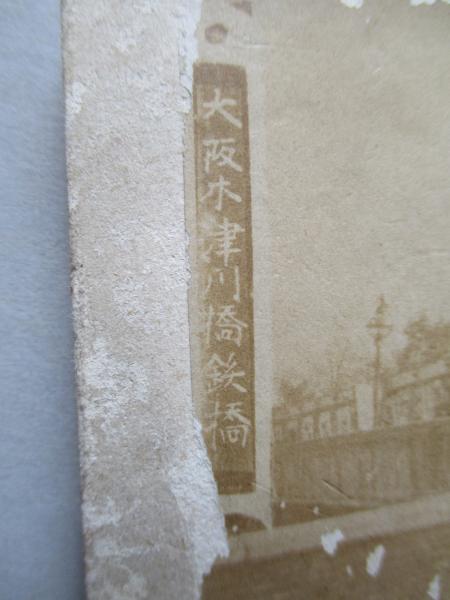 大阪木津川橋鉄橋